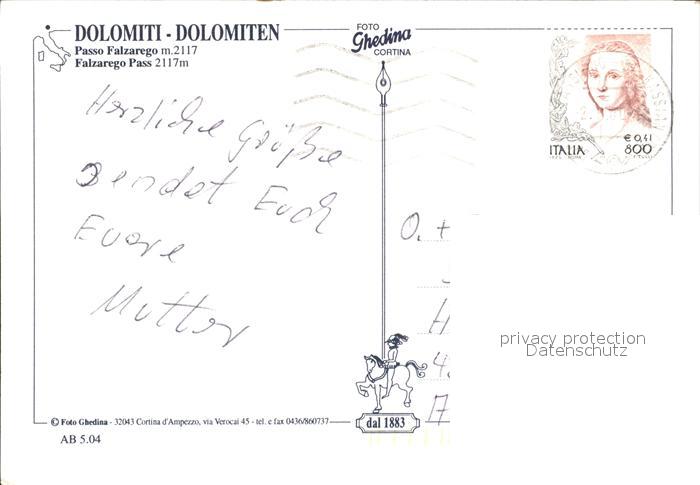 DOLOMITI - DOLOMITEN
Passo Falzarego m.2117
Falzarego Pass 2117m
FOTO
Ghedina
CORTINA
€ 0,41
ITALIA 800
Herzliche Grüße
sendet Euch
Euere
Mutter
O. +
H
4.
17
privacy protection
Datenschutz
© Foto Ghedina - 32043 Cortina d'Ampezzo, via Verocai 45 - tel. e fax 0436/860737
dal 1883
AB 5.04